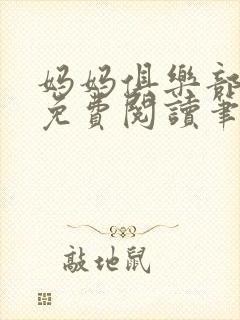 妈妈俱樂部
免費閱讀筆
敲地鼠